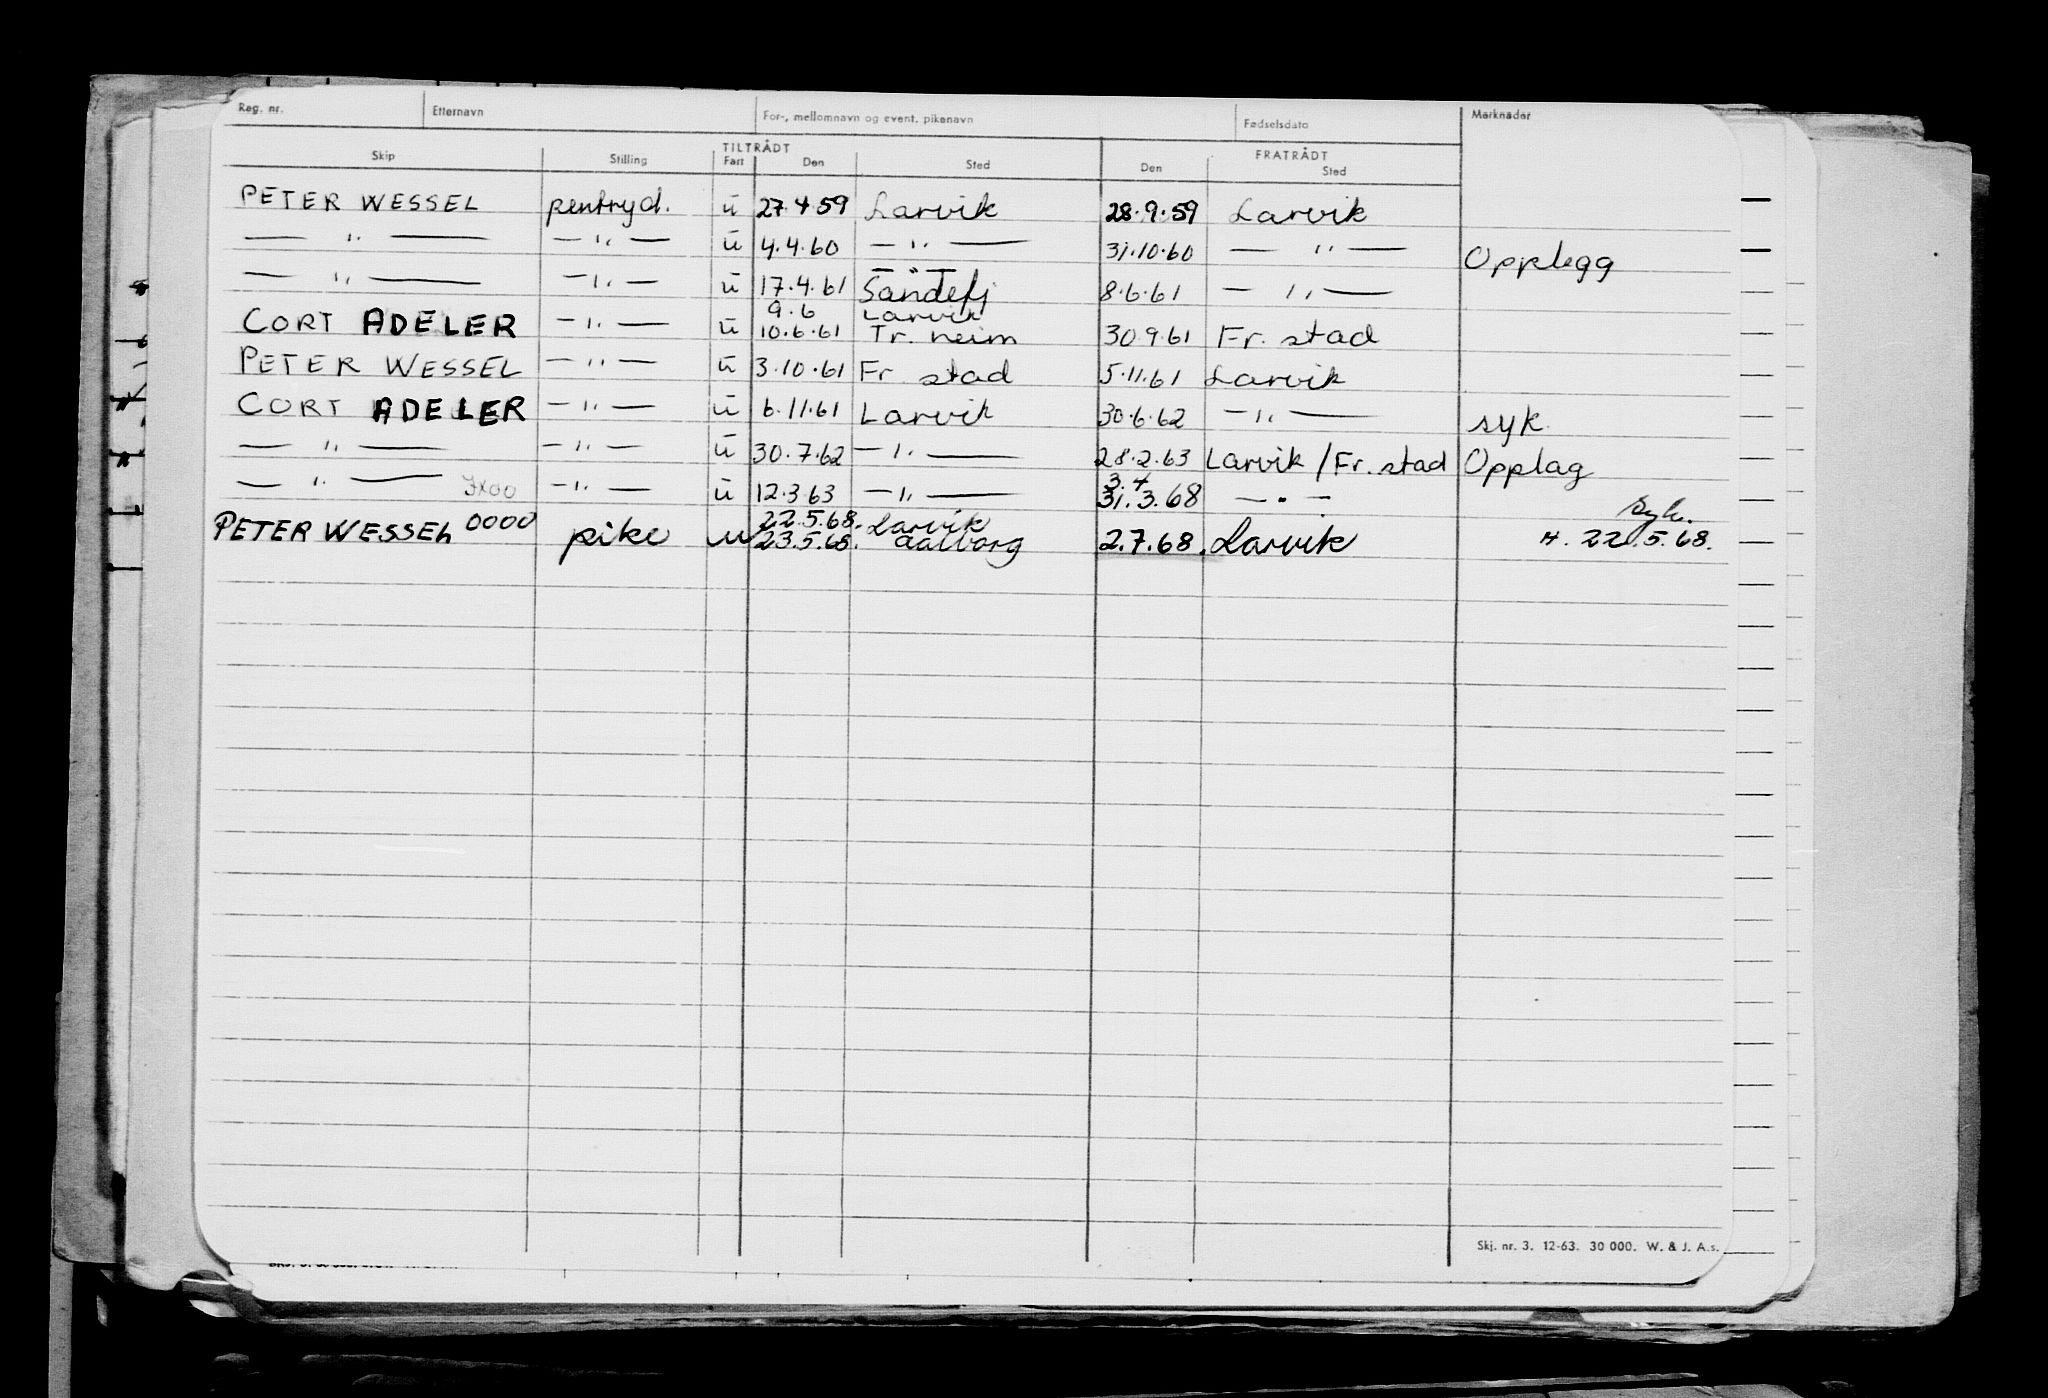 Reg. nr. Etternavn For-, mellomnavn og event. pikenavn Fødselsdato Merknader
TILTRÅDT FRATRÅDT
Skip Stilling Fart Den Sted Den Sted
PETER WESSEL pentryd. u 27.4.59 Larvik 28.9.59 Larvik
— " — — " — u 4.4.60 — " — 31.10.60 — " — Opplegg
— " — — " — u 17.4.61 Sandefj 8.6.61 — " —
9.6 Larvik
CORT ADELER — " — u 10.6.61 Tr. heim 30.9.61 Fr. stad
PETER WESSEL — " — u 3.10.61 Fr. stad 5.11.61 Larvik
CORT ADELER — " — u 6.11.61 Larvik 30.6.62 — " — syk
— " — — " — u 30.7.62 — " — 28.2.63 Larvik / Fr. stad Opplag
3.4
— " — — " — u 12.3.63 — " — 31.3.68 — " —
22.5.68. Larvik syk.
PETER WESSEL 0000 pike u 23.5.68. Aalborg 2.7.68. Larvik H. 22.5.68.
Skj. nr. 3. 12-63. 30 000. W. & J. A.s.